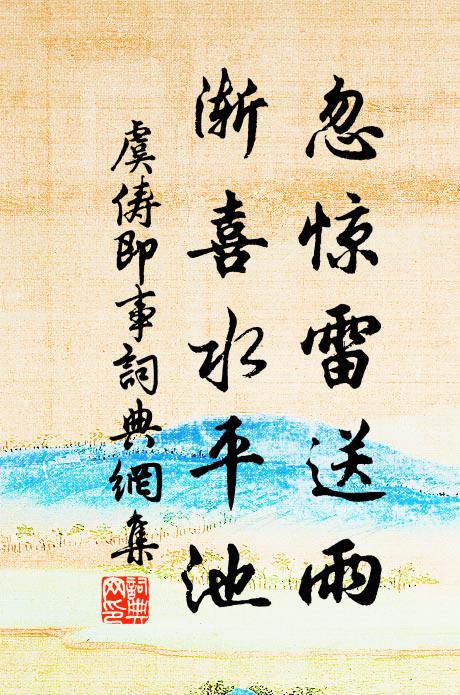 忽惊雷送雨
渐喜水平池
虞俦即事詞典網集
詞典